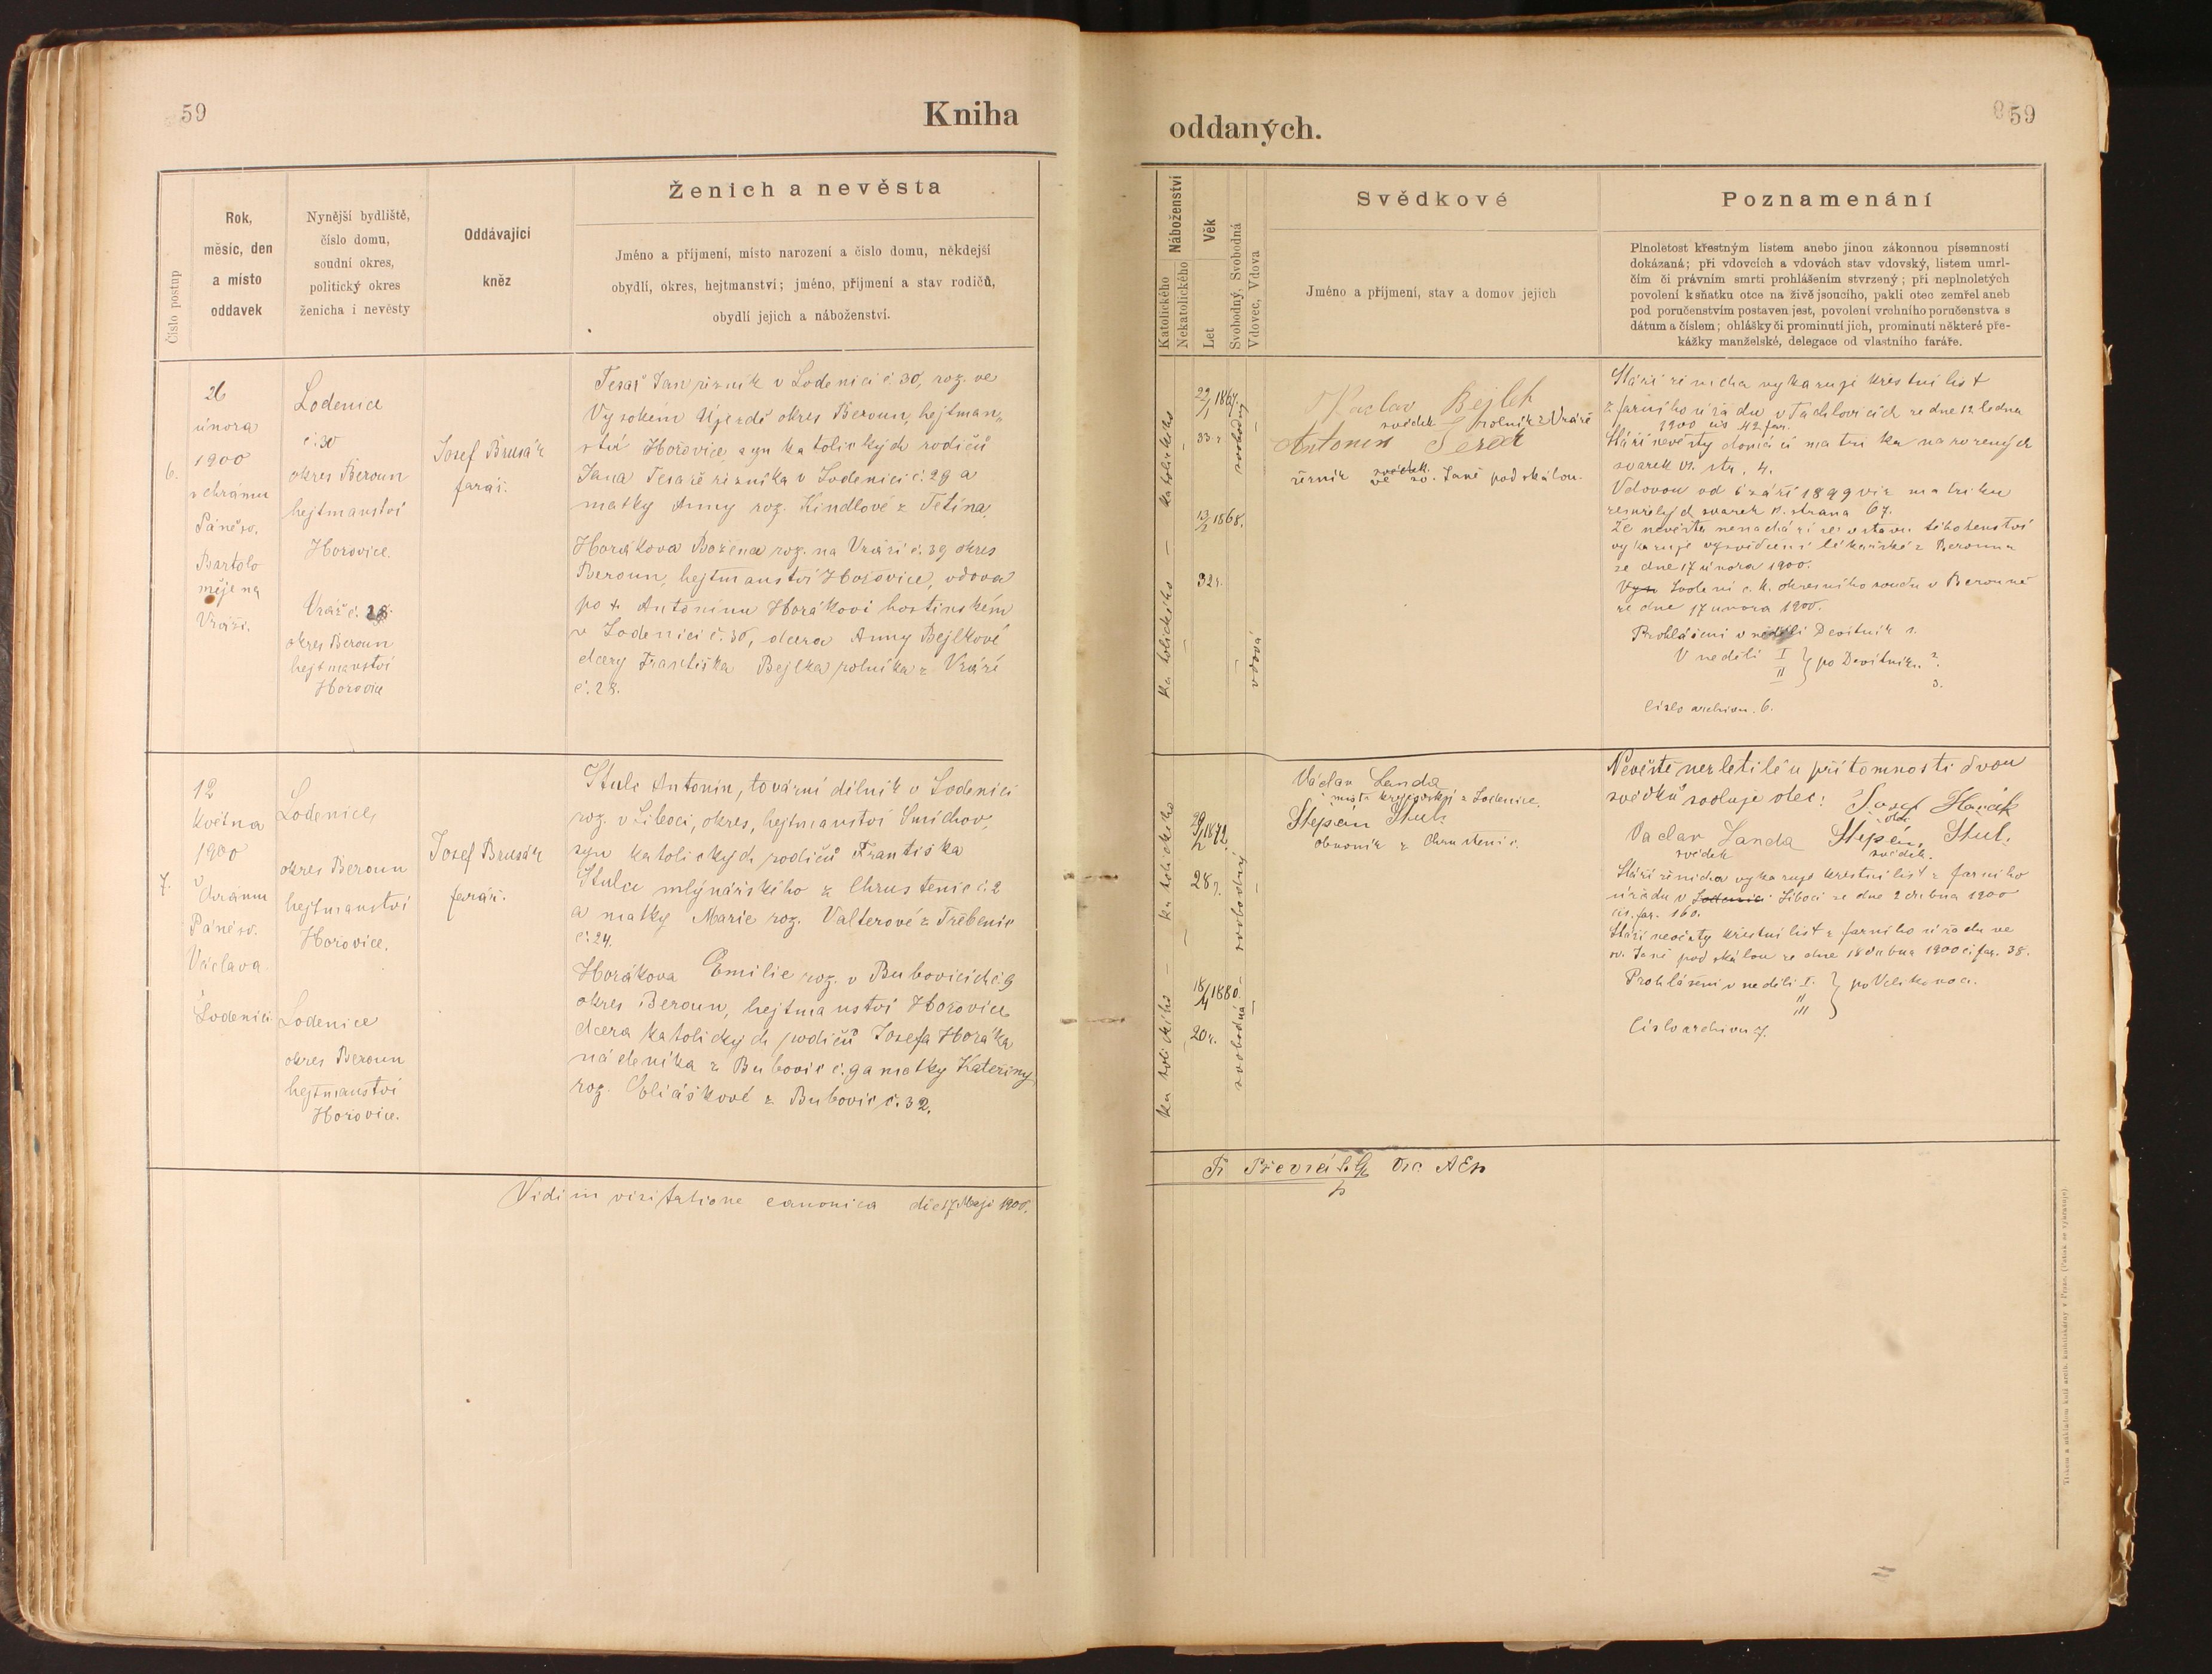 59
Kniha
Číslo postup
Rok,
měsíc, den
a místo
oddavek
Nynější bydliště,
číslo domu,
soudní okres,
politický okres
ženicha i nevěsty
Oddávající
kněz
Ženich a nevěsta
Jméno a příjmení, místo narození a číslo domu, někdejší
obydlí, okres, hejtmanství; jméno, příjmení a stav rodičů,
obydlí jejich a náboženství.
6.
26
února
1900
v chrámu
Páně sv.
Bartolo
měje na
Vráži.
Lodenice
č. 30
okres Beroun
hejtmanství
Hořovice.
Vráž č. 28.
okres Beroun
hejtmanství
Hořovice
Josef Brusák
farář.
Tesař Jan řezník v Lodenici č. 30, roz. ve
Vysokém Újezdě okres Beroun, hejtman„
ství Hořovice, syn katolických rodičů
Jana Tesaře řezníka v Lodenici č. 29 a
matky Anny roz. Kindlové z Tetína.
Horákova Božena roz. na Vráži č. 39 okres
Beroun, hejtmanství Hořovice, vdova
po † Antonínu Horákovi hostinském
v Lodenici č. 30, dcera Anny Bejlkové
dcery Františka Bejlka rolníka z Vráže
č. 28.
7.
12
května
1900
v
chrámu
Páně sv.
Václava
v
Lodenici.
Lodenice
okres Beroun
hejtmanství
Hořovice.
Lodenice
okres Beroun
hejtmanství
Hořovice.
Josef Brusák
farář.
Štulc Antonín, tovární dělník v Lodenici
roz. v Liboci, okres, hejtmanství Smíchov,
syn katolických rodičů Františka
Štulce mlynářského z Chrustenic č. 2
a matky Marie roz. Valterové z Třebenic
č. 24.
Horákova Emilie roz. v Bubovicích č. 9
okres Beroun, hejtmanství Hořovice
dcera katolických rodičů Josefa Horáka
nádeníka z Bubovic č. 9 a matky Kateřiny
roz. Eliáškové z Bubovic č. 32.
Vidi in visitatione canonica die 17 Maji 1900.
oddaných.
59
Náboženství
Katolického
Nekatolického
Věk
Let
Svobodný, Svobodná
Vdovec, Vdova
Svědkové
Jméno a příjmení, stav a domov jejich
Poznamenání
Plnoletost křestným listem anebo jinou zákonnou písemností
dokázaná; při vdovcích a vdovách stav vdovský, listem umrl-
čím či právním smrti prohlášením stvrzený; při neplnoletých
povolení k sňatku otce na živě jsoucího, pakli otec zemřel aneb
pod poručenstvím postaven jest, povolení vrchního poručenstva s
dátum a číslem; ohlášky či prominutí jich, prominutí některé pře-
kážky manželské, delegace od vlastního faráře.
katolického
22/1 1867.
33 r.
svobodný
katolického
13/2 1868.
32 r.
vdová
Václav Bejlek
svědek rolník z Vráže
Antonín
svědek.
řezník ve sv. Janě pod skálou.
Stáří ženicha vykazuje křestní list
z farního úřadu v Tachlovicích ze dne 12. ledna
1900 čís 42 far.
Stáří nevěsty domácí matrika narozených
svazek VI. str. 4.
Vdovou od 6 září 1899 viz matriku
zemřelých svazek II. strana 67.
Že nevěsta nenachází se v stavu těhotenství
vykazuje vysvědčení lékařské z Berouna
ze dne 17 února 1900.
Svolení c. k. okresního soudu v Berouně
ze dne 17 února 1900.
Prohlášení v neděli Devítník 1.
V neděli I } po Devítníku. 2.
II 3.
Číslo archivu. 6.
katolického
29/1 1872.
28 r.
svobodný
katolického
18/4 1880.
20 r.
svobodná
Václav Landa
mistr krejčovský z Lodenice.
Štěpán Stul.
obuvník z Chrustenic.
Nevěstě nezletilé u přítomnosti dvou
svědků svoluje otec: Josef Horák
otec
Vaclav Landa Štěpán Stul.
svědek svědek.
Stáří ženicha vykazuje křestní list z farního
úřadu v Lodenici Liboci ze dne 2 dubna 1900
čís. far. 160.
Stáří nevěsty křestní list z farního úřadu ve
sv. Janě pod skálou ze dne 18 dubna 1900 č. far. 38.
Prohlášení v neděli I. } po Velikonoci.
II
III
Číslo archivu 7.
Fr
Tiskem a nákladem kníž. arcib. knihtiskárny v Praze. (Patisk se vyhrazuje)